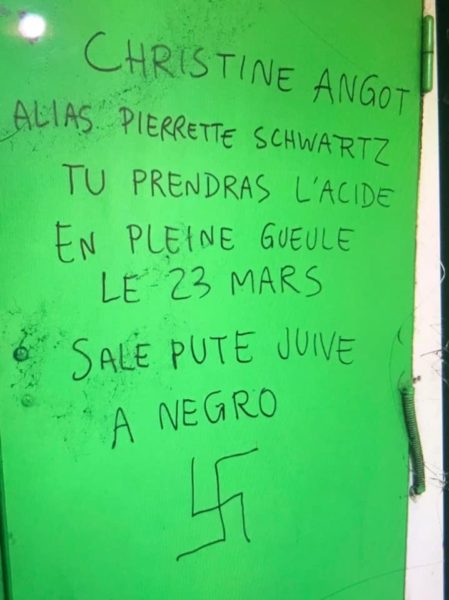 CHRISTINE ANGOT
ALIAS PIERRETTE SCHWARTZ
TU PRENDRAS L'ACIDE
EN PLEINE GUEULE
LE 23 MARS
SALE PUTE JUIVE
A NEGRO